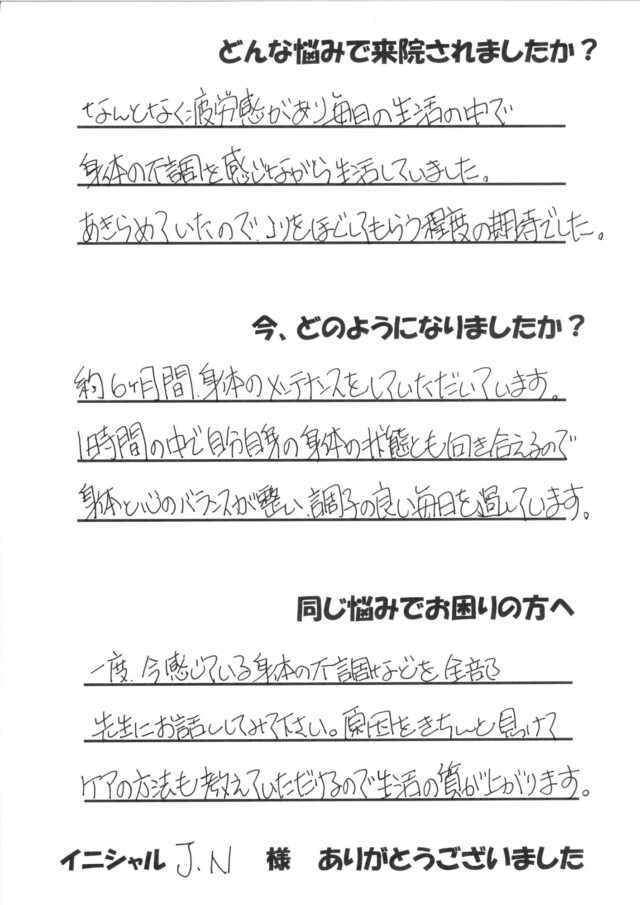 どんな悩みで来院されましたか？
なんとなく疲労感があり毎日の生活の中で
身体の不調を感じながら生活していました。
あきらめていたので、コリをほぐしてもらう程度の期待でした。
今、どのようになりましたか？
約6ヶ月間、身体のメンテナンスをしていただいています。
1時間の中で自分自身の身体の状態とも向き合えるので
身体と心のバランスが整い、調子の良い毎日を過しています。
同じ悩みでお困りの方へ
一度、今感じている身体の不調などを全部
先生にお話ししてみて下さい。原因をきちんと見つけて
ケアの方法も考えていただけるので生活の質が上がります。
イニシャル J.N 様 ありがとうございました